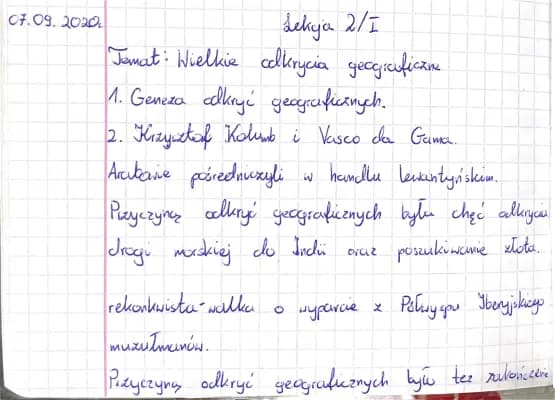 07.09.2020r.
Lekcja 2/I
Temat: Wielkie odkrycia geograficzne
1. Geneza odkryć geograficznych.
2. Krzysztof Kolumb i Vasco da Gama.
Arabowie pośredniczyli w handlu lewantyńskim.
Przyczyną odkryć geograficznych była chęć odkrycia
drogi morskiej do Indii oraz poszukiwanie złota.
rekonkwista - walka o wyparcie z Półwyspu Iberyjskiego
muzułmanów.
Przyczyną odkryć geograficznych było też zakończenie